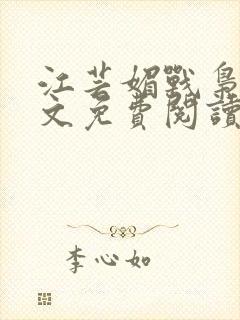 江芸媚戰梟
文免費閱讀
李心如